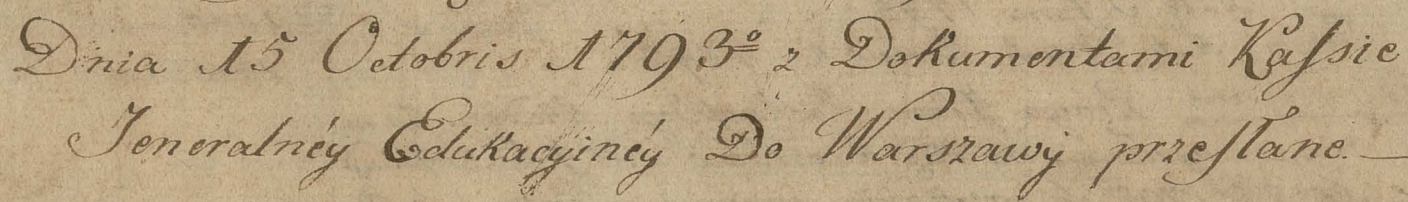 Dnia 15 Octobris 1793º z Dokumentami Kaſsie
Jeneralnéy Edukacyinéy Do Warszawy przeſłane. —